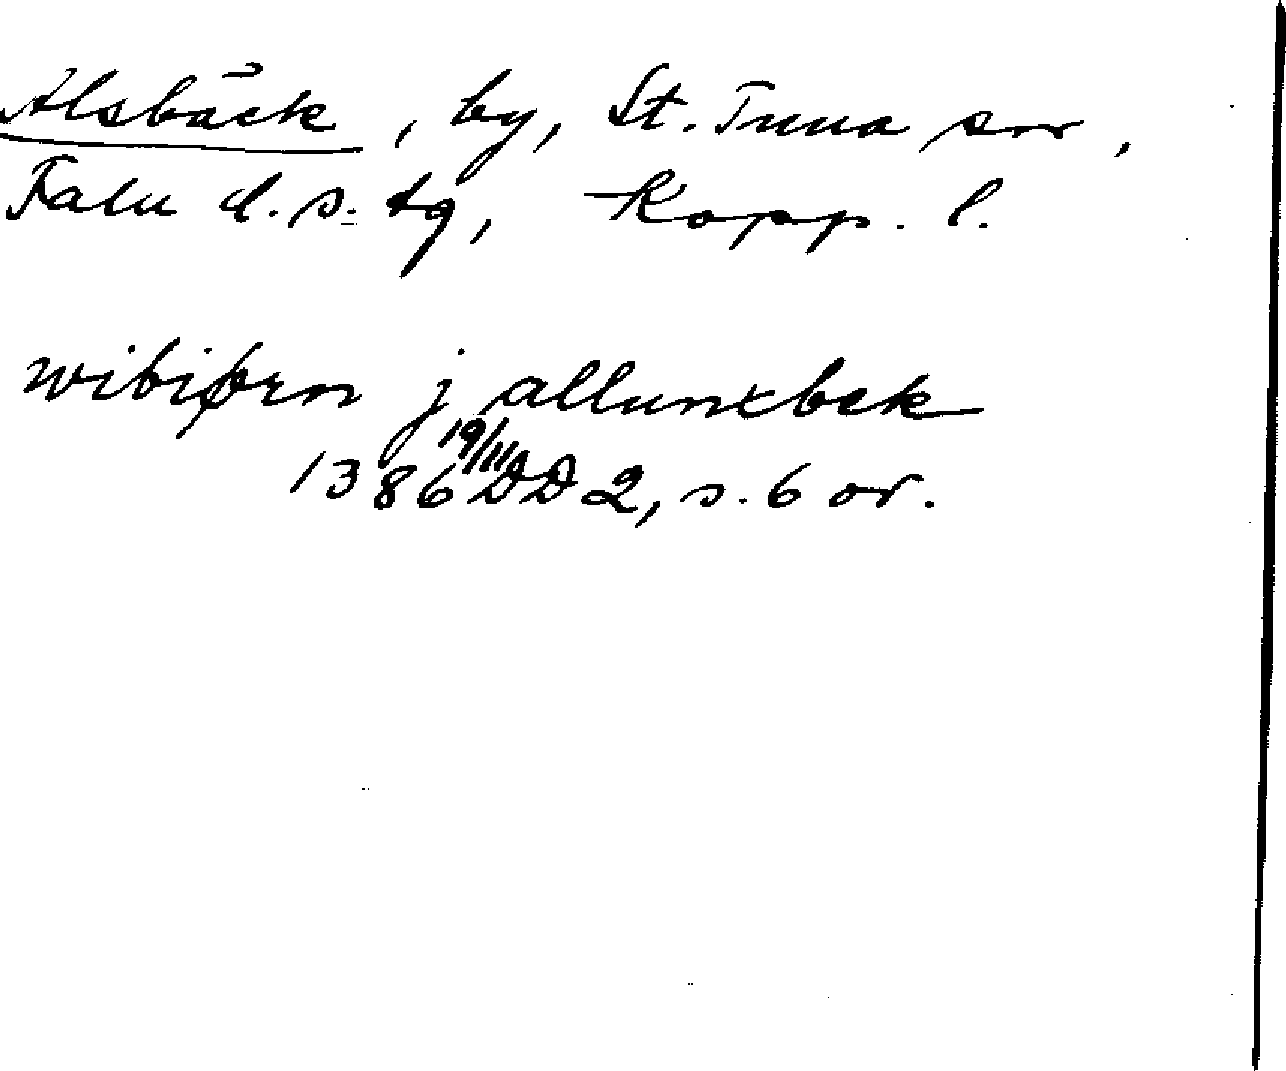 Alsbäck, by, St. Tuna sn,
Falu d.s. tg, Kopp. l.
wibiørn j allunxbek
1386 19/11 DD 2, s. 6 or.